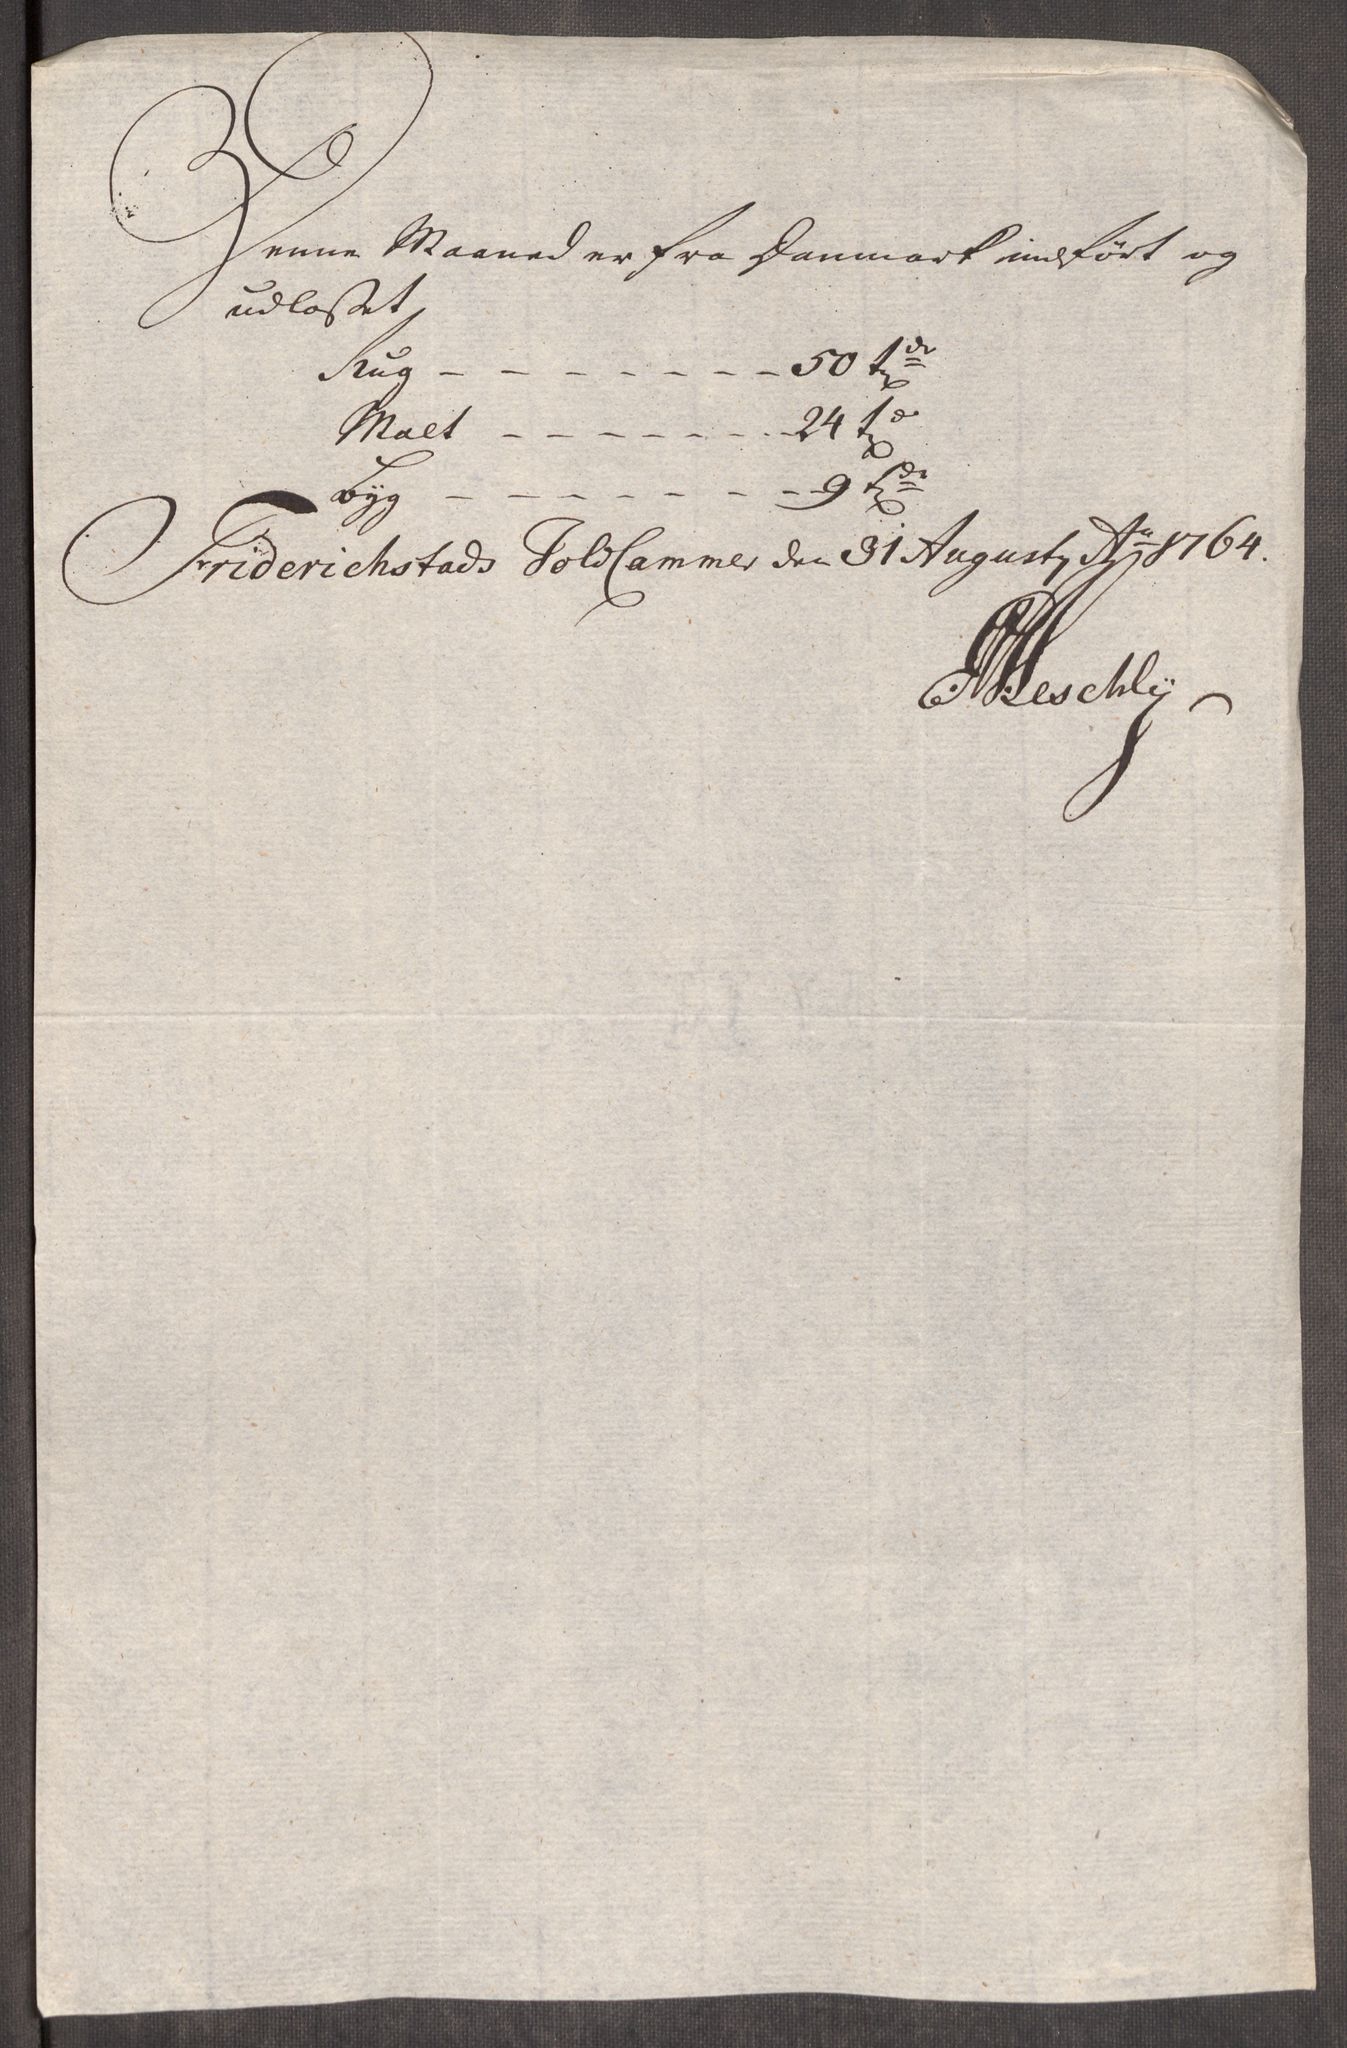 Denne Maaned er fra Danmark indført og
udlosset
Rug - - - - - - - - 50 tdr
Malt - - - - - - - - 24 td
Byg - - - - - - - - 9 tdr
Friderichstads Told Cammer den 31 August Ao 1764.